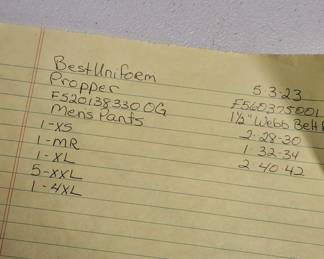 Best Uniform
Propper
F520138330OG
Mens Pants
1-XS
1-MR
1-XL
5-XXL
1-4XL
5-3-23
F560375001
1½" Webb Belt
2-28-30
1-32-34
2-40-42